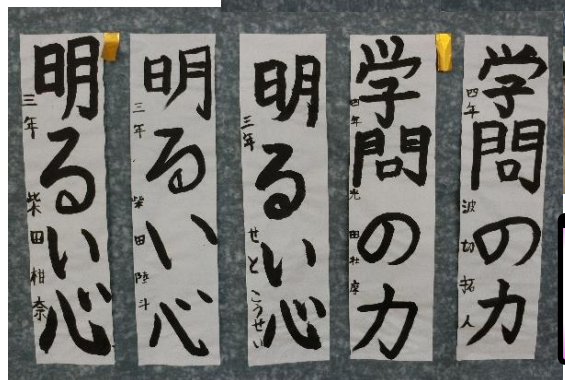 学問の力
四年 波切拓人
学問の力
四年
明るい心
三年 せとこうせい
明るい心
三年 柴田陸斗
明るい心
三年 柴田柑奈